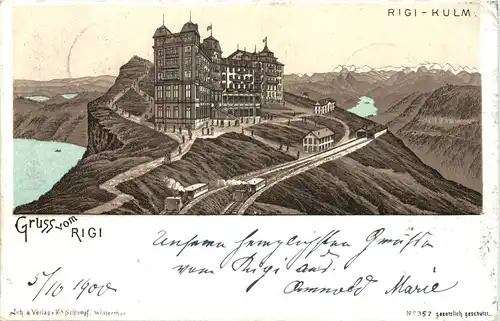 RIGI - KULM.
Gruss vom
RIGI
Unsere herzlichsten Grüsse
vom Rigi aus.
5/10 1900
Arnold Marie
Lith. & Verlag v. Hch Schlumpf, Winterthur
No 357 gesetzlich geschützt.